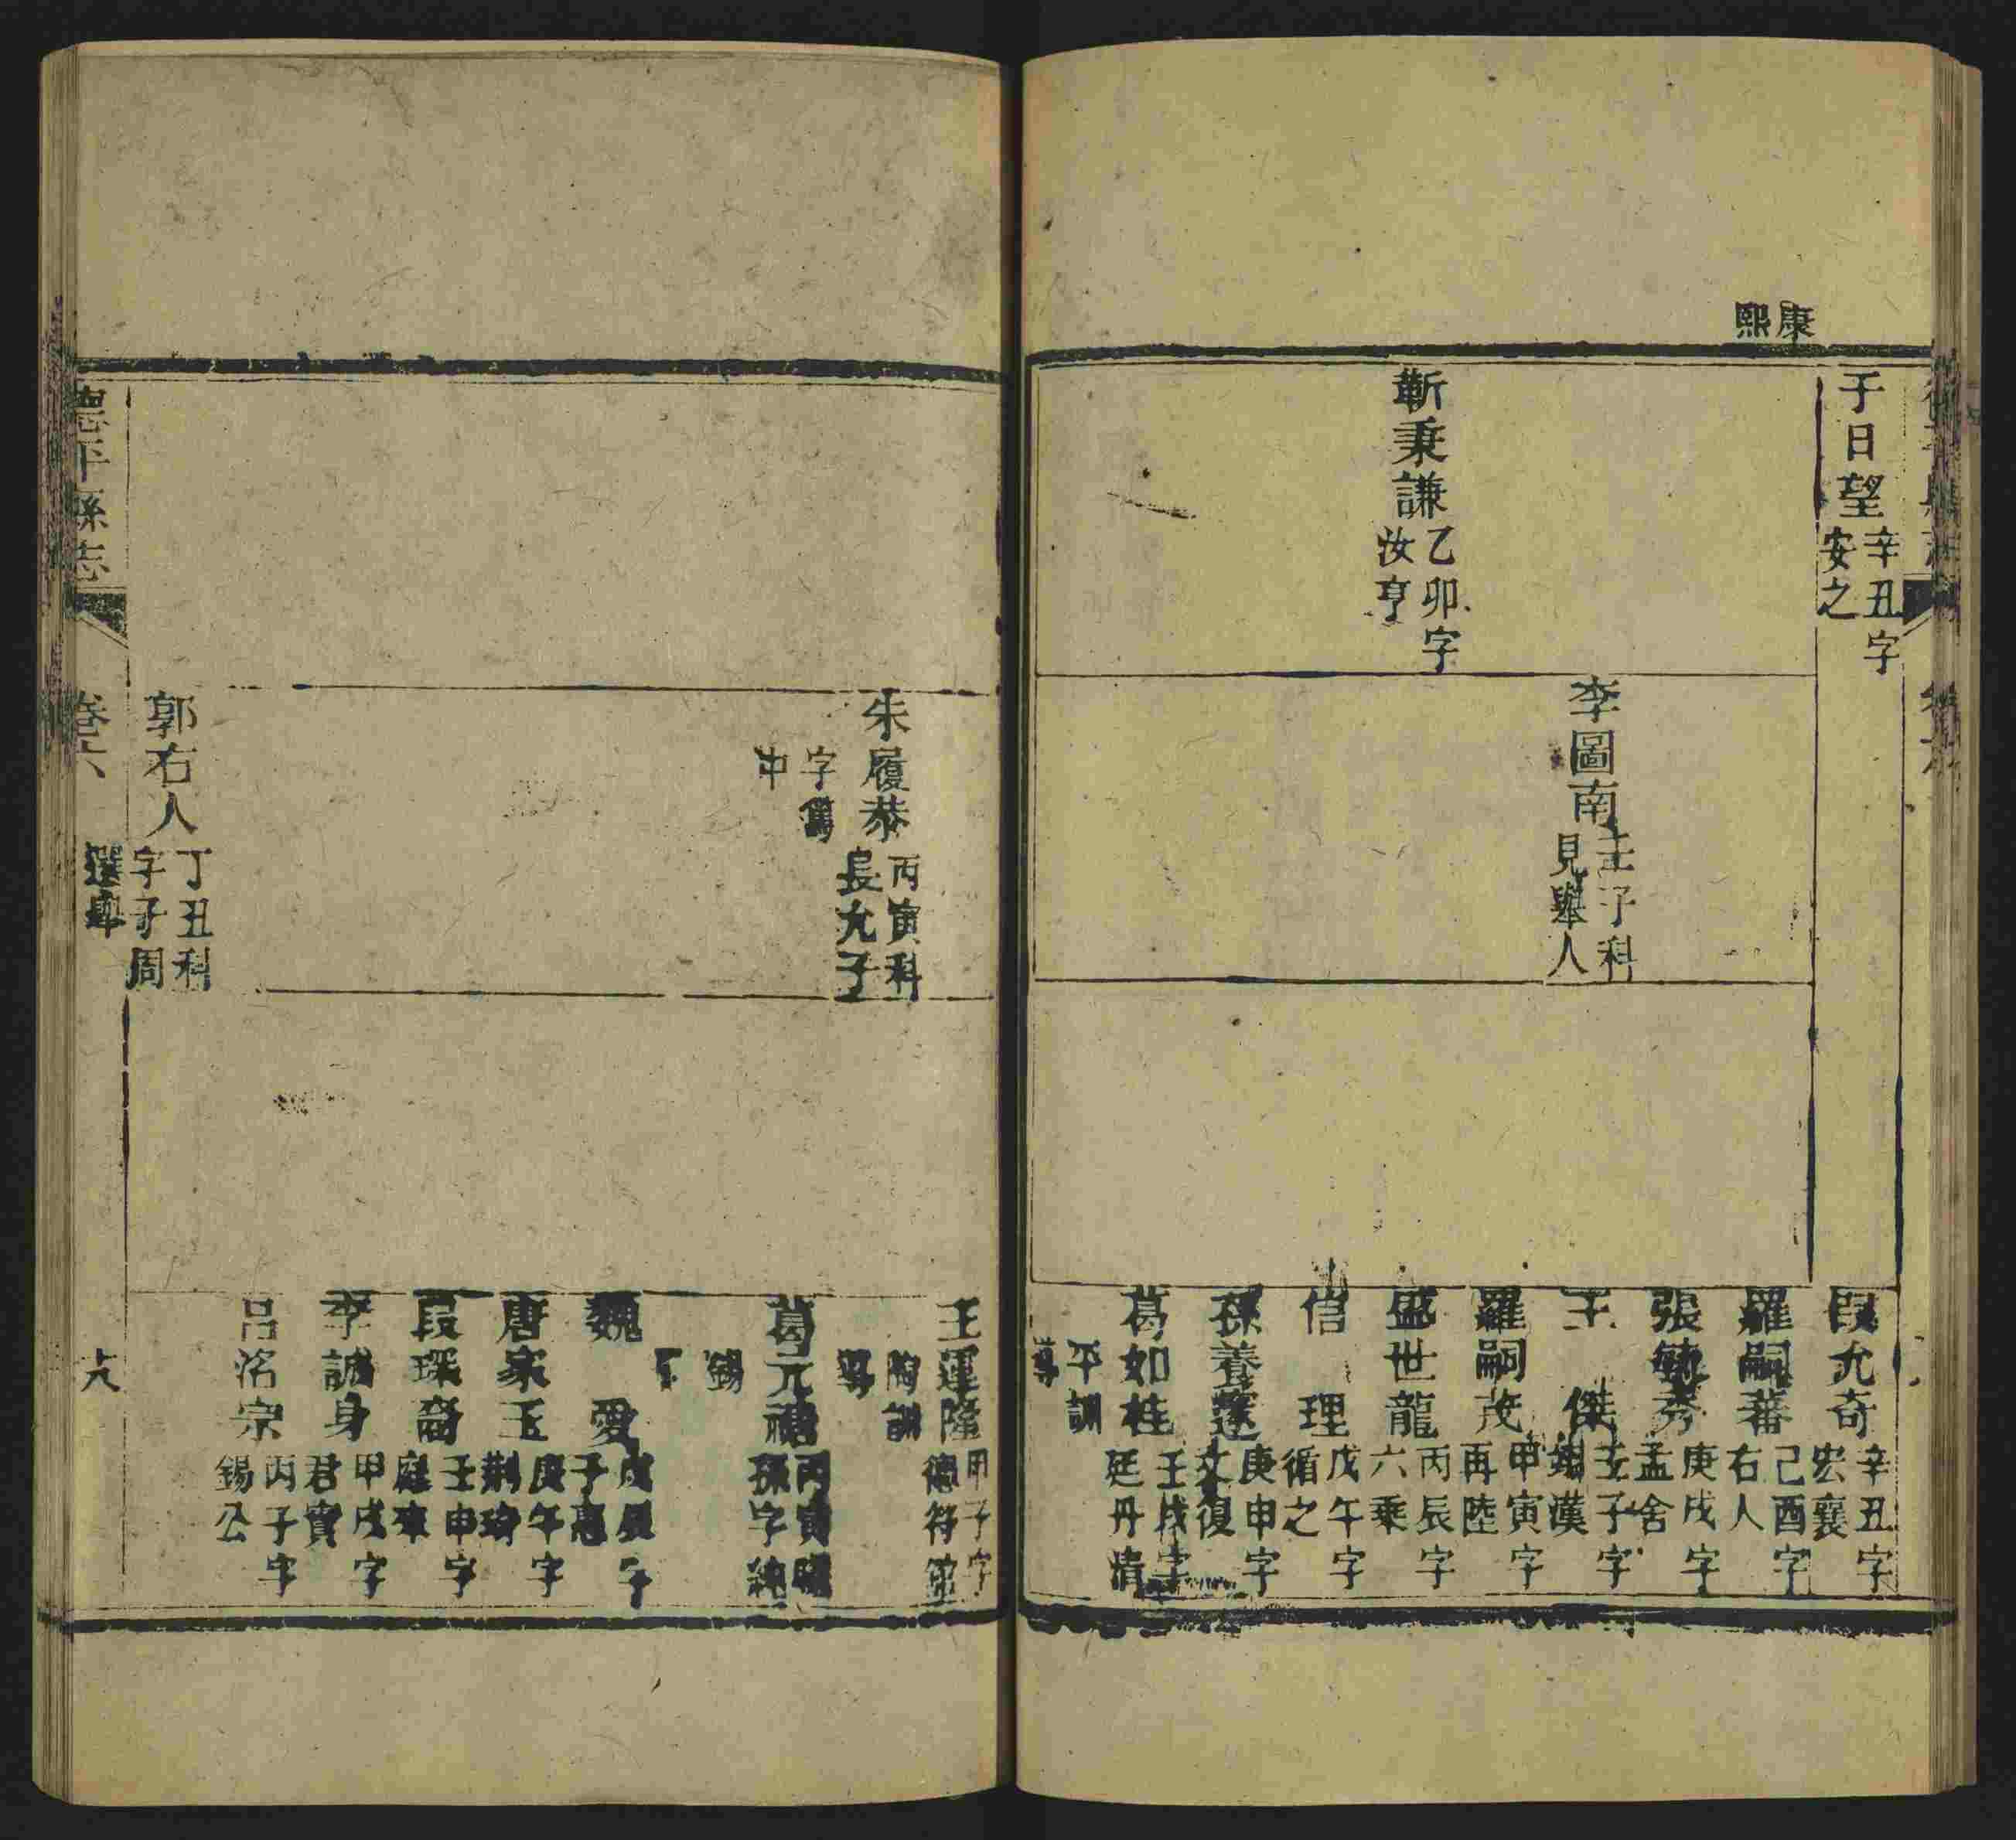 康熙
于日望辛丑字安之
靳秉謙乙卯字汝亨
李圖南壬子科見舉人
段允奇辛丑字宏襄
羅嗣蕃己酉字右人
張毓秀庚戌字孟舍
王傑壬子字漢
羅嗣茂甲寅字再陸
盛世龍丙辰字六乘
信理戊午字循之
孫養蓬庚申字文復
葛如桂壬戌字廷丹清
平訓導
朱履恭丙寅科長允子
字篤中
郭右人丁丑科字子周
王運隆甲子字德符
訓導
葛元禧丙寅孫字純
錫
魏愛戊辰字子惠
唐家玉庚午字荆
段琛裔壬申字庭來
李誠身甲戌字君實
呂洺宗丙子字錫公
德平縣志
卷六
選舉
十八